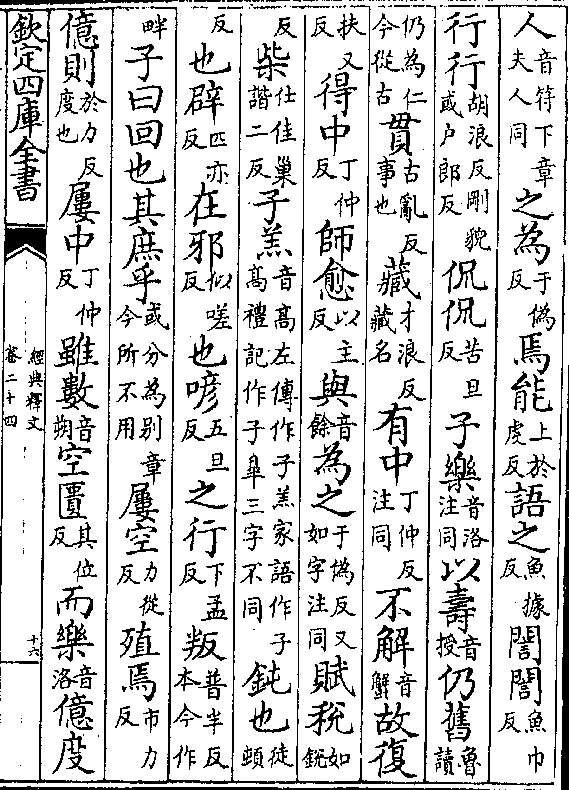 人音符下章夫人同之為于偽反焉能上於虔反語之魚據反誾誾魚巾反
行行胡浪反剛貌或户郎反侃侃苦旦反子樂音洛注同以壽音授仍舊魯讀
仍為仁今從古貫古亂反事也藏才浪反藏名有中丁仲反注同不解音蟹故復
扶又反得中丁仲反師愈以主反與音餘為之于偽反又如字注同賦稅如銳
反柴仕佳巢諧二反子羔音高左傳作子羔家語作子髙禮記作子臯三字不同鈍也徒頓
反也辟匹亦反在邪似嗟反也喭五旦反之行下孟反叛普半反本今作
畔子曰回也其庶乎或分為别章今所不用屢空力從反殖焉市力反
億則於力反度也屢中丁仲反雖數音朔空匱其位反而樂音洛億度
欽定四庫全書
經典釋文
卷二十四
十六